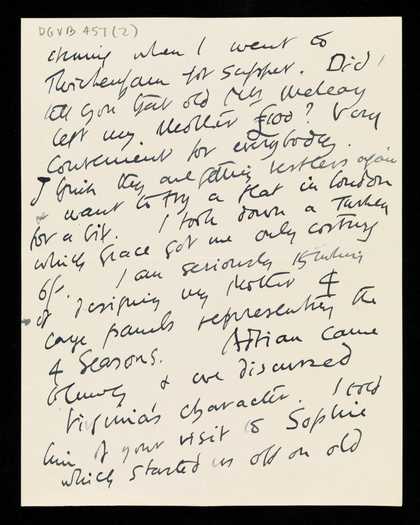 DGVB AST (2)
evening when I went to
Twickenham for supper. Did I
tell you that old Mrs
left my Mother £100? Very
convenient for everybody.
I think they are getting restless again
& want to try a flat in London
for a bit. I took down a Turkey
which Grace got me only costing
6/-. I am seriously thinking
of designing my Mother 4
large panels representing the
4 Seasons. Adrian came
& we discussed
Virginia's character. I told
him of your visit to Sophie
which started us off on old